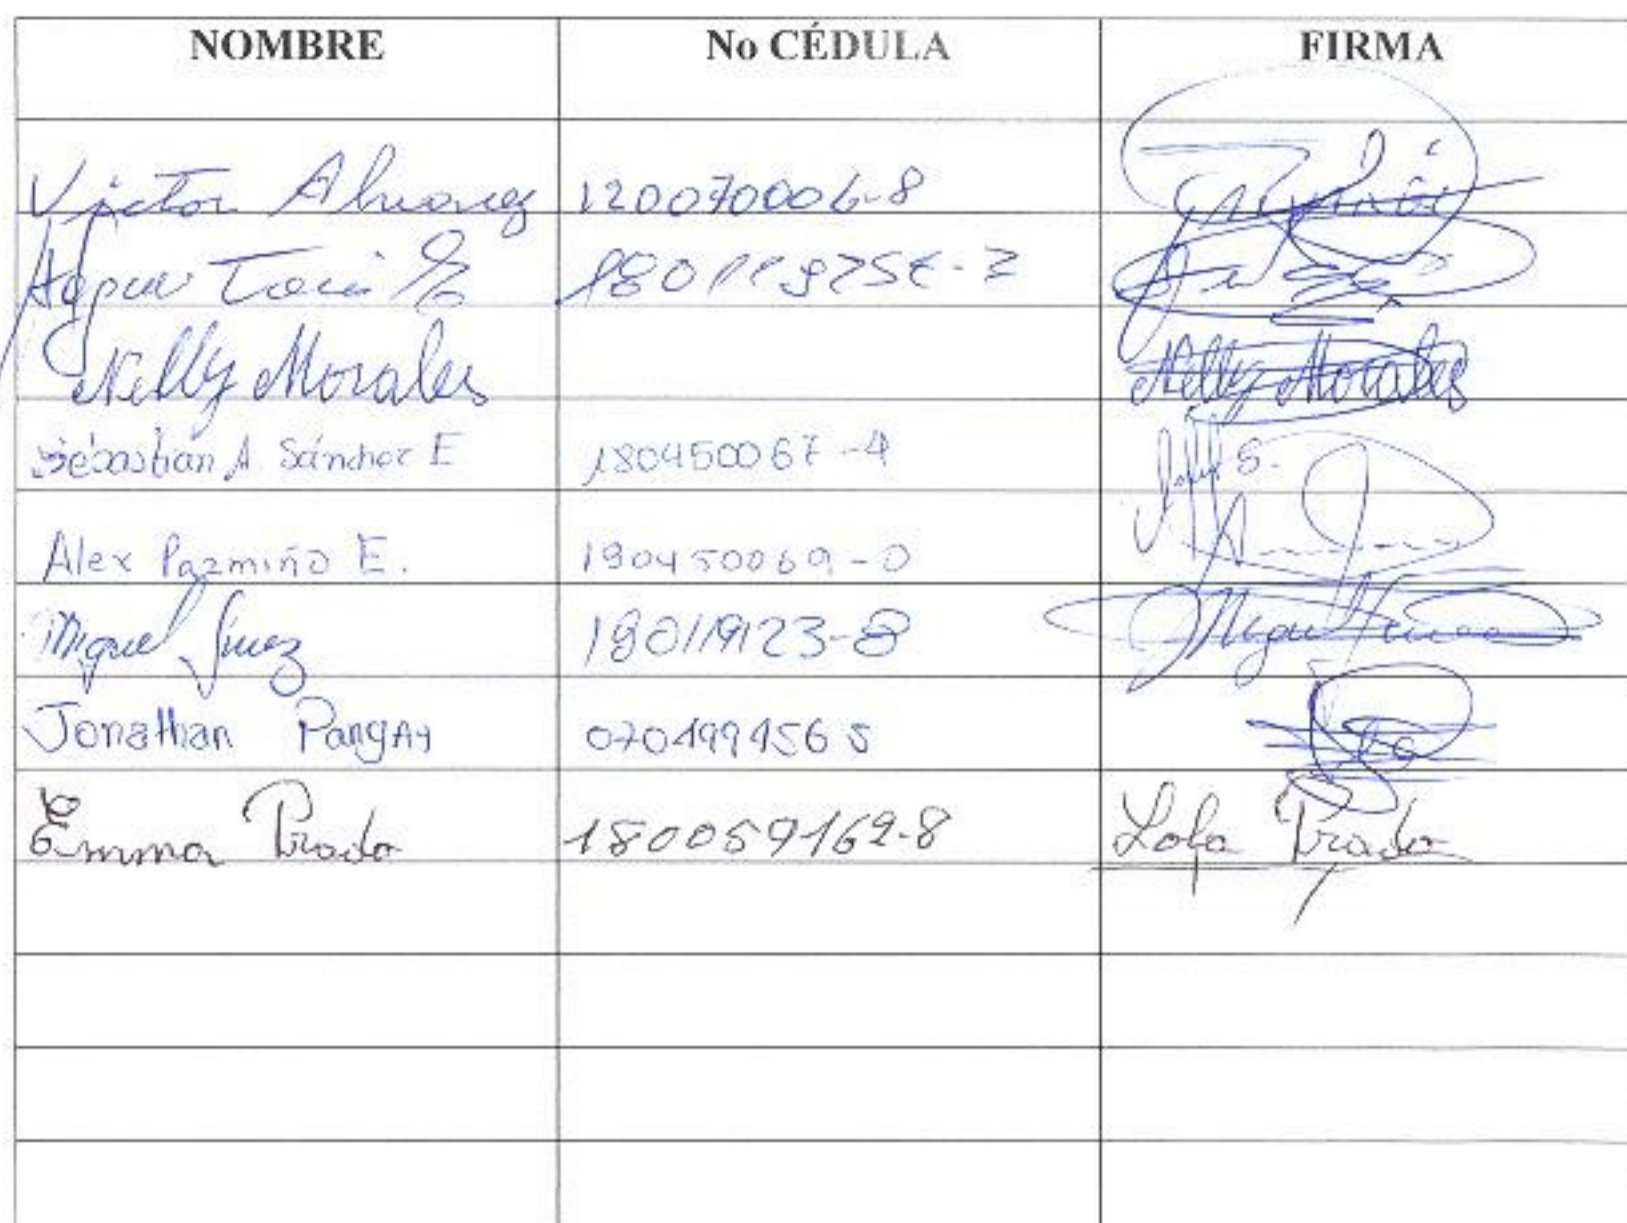 NOMBRE No CÉDULA FIRMA
Victor Alvarez 120070006-8
Nelly Morales Nelly Morales
Sebastian A. Sánchez E 180450067-4 S.
Alex Pazmiño E. 180450069-0
Miguel 180119123-8 Miguel
Jonathan PangAy 0701991565
Emma Prado 180059169-8 Lola Prado